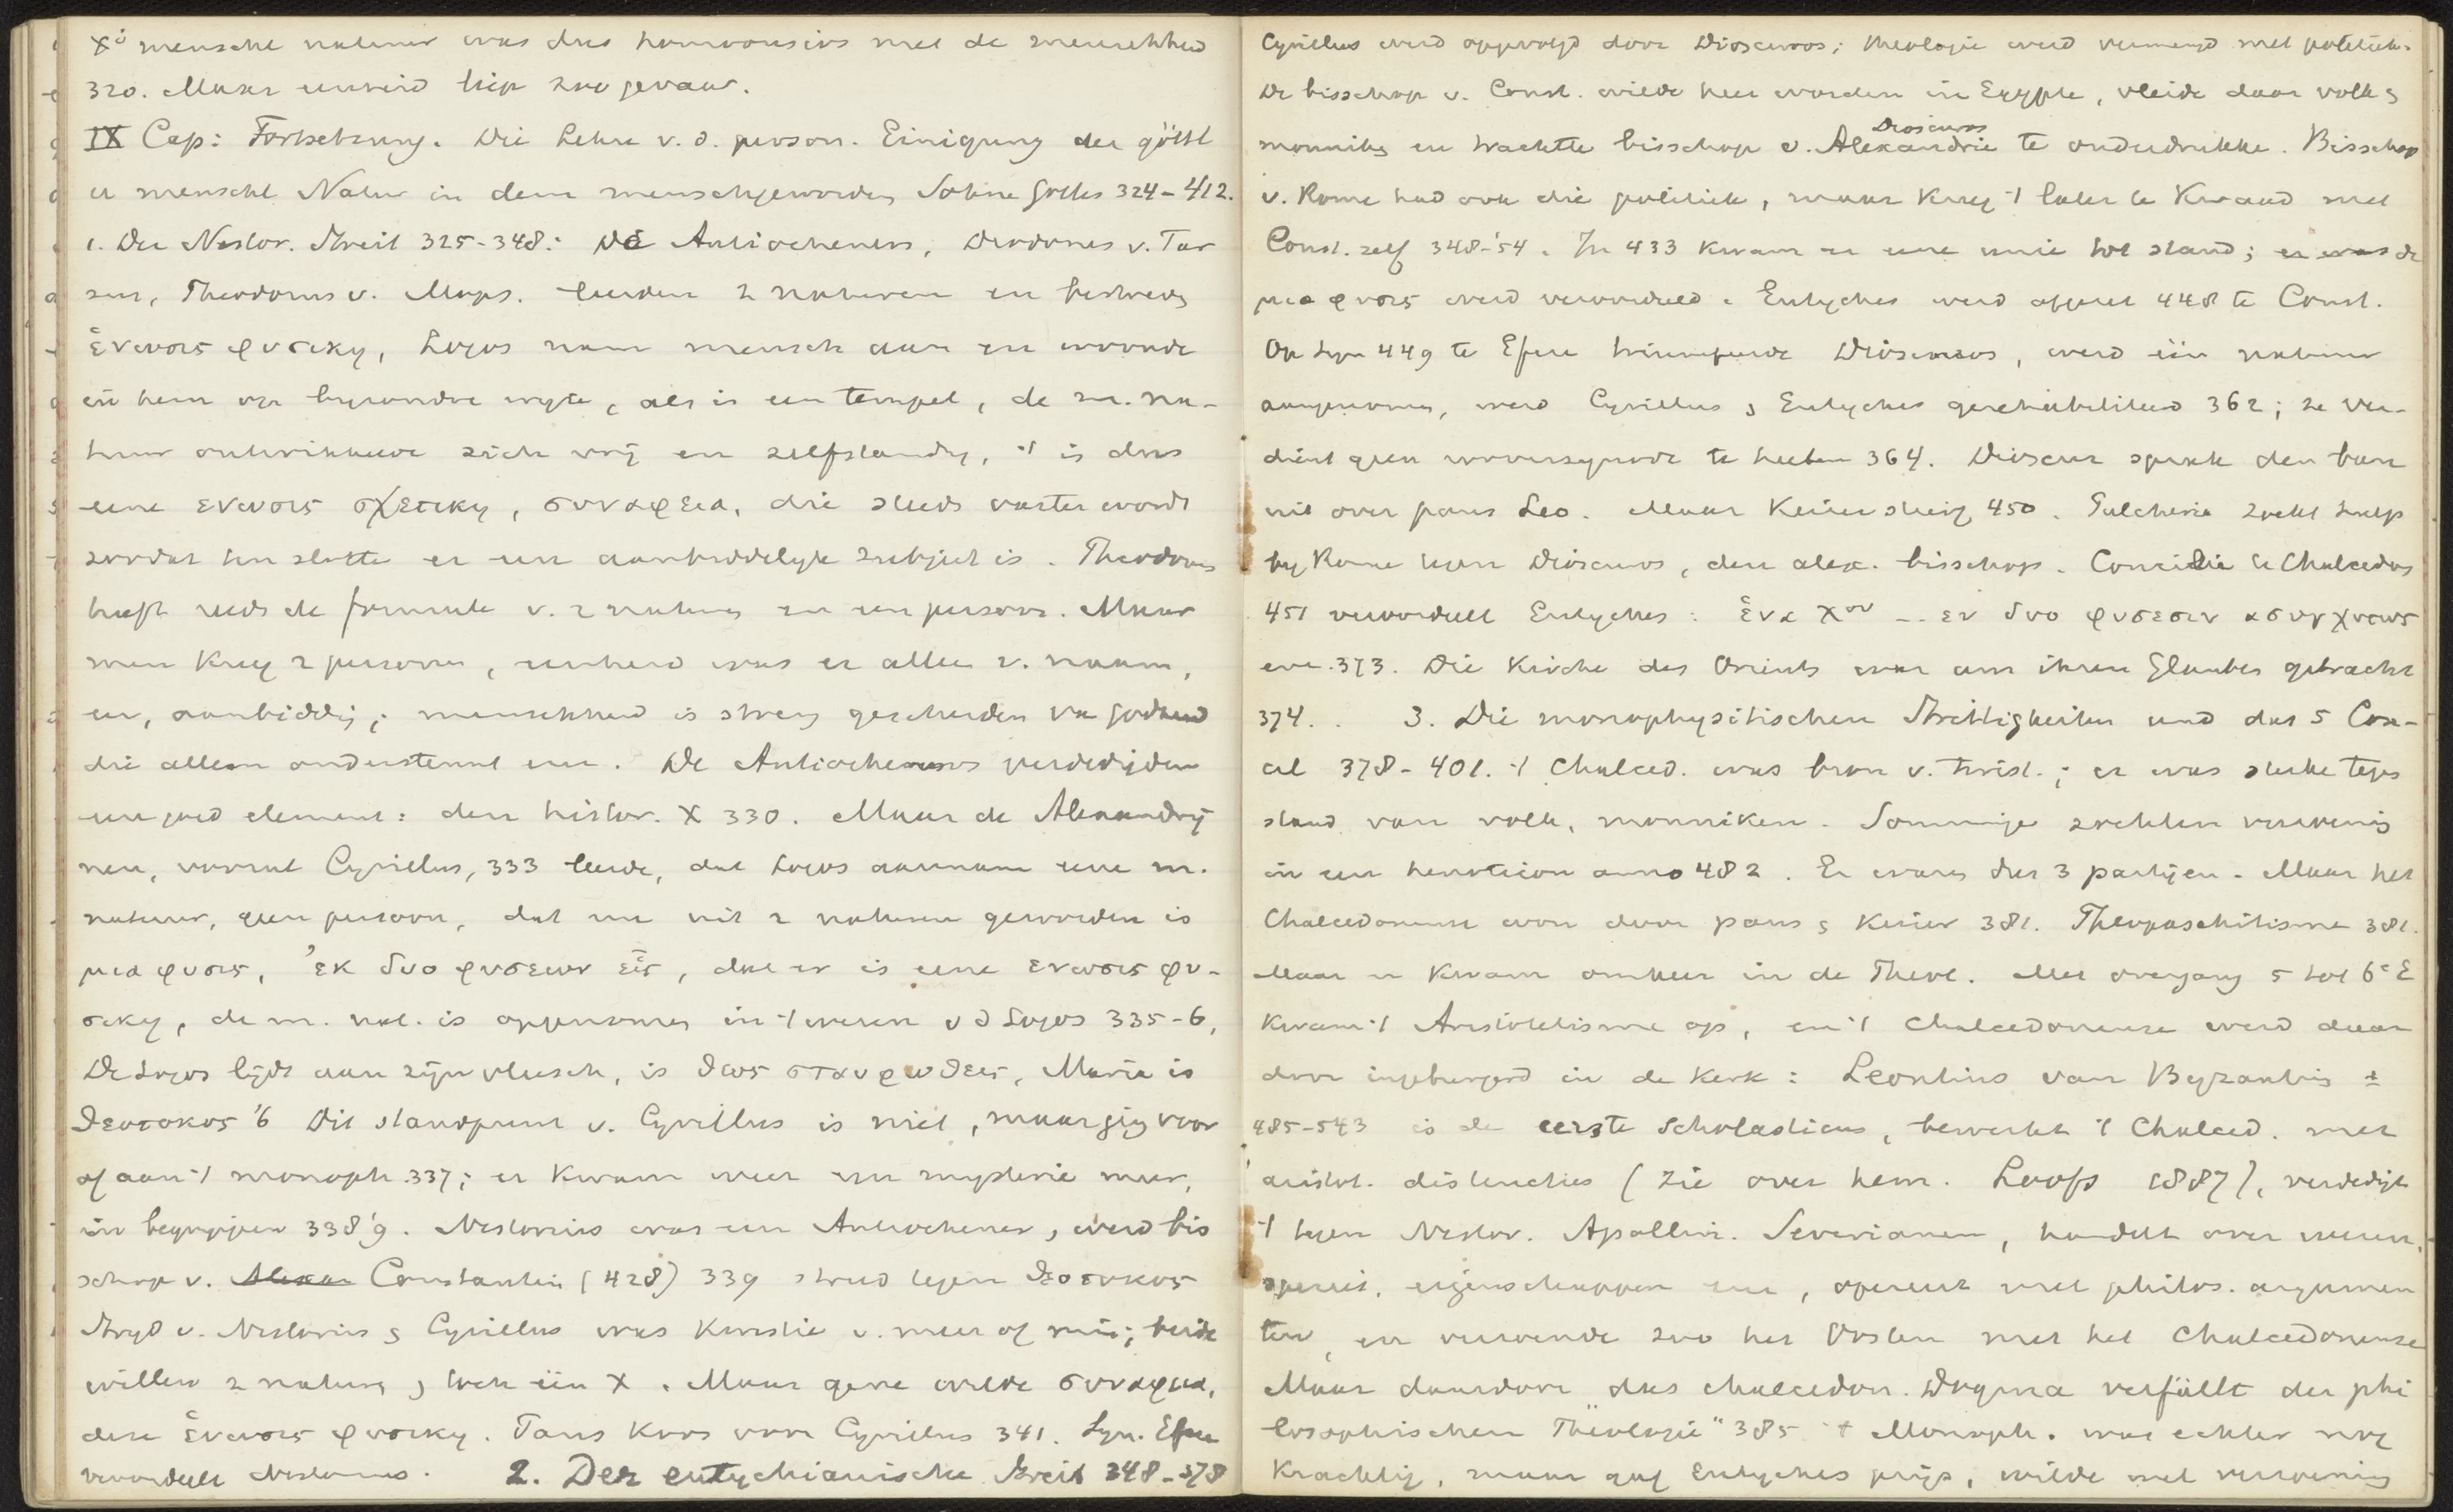 X's menschl natuur was dus homoousios met de menschheid
320. Maar eenheid liep zoo gevaar.
IX Cap: Fortsetzung. Die Lehre v. d. person. Einigung der göttl
u menschl Natur in dem menschgeworden Sohne Gottes 324-412.
1. Der Nestor. Streit 325-348: De Antiocheners, Diodorus v. Tar
sus, Theodorus v. Mops. leerden 2 naturen en bestreden
ἑνωσις φυσικη, Logos nam mensch aan en woonde
in hem op byzondre wyze, als in een tempel, de m. na-
tuur ontwikkelde zich vrij en zelfstandig, 't is dus
eene ενωσις σχετικη, συναφεια, die steeds vaster wordt
zoodat ten slotte er een aanbiddelyk subject is. Theodorus
heeft reeds de formule v. 2 naturen en een persoon. Maar
men kreeg 2 personen, eenheid was er alleen v. naam,
eer, aanbiddig; menschheid is streng gescheiden van godheid
die alleen ondersteunt enz. De Antiocheners verdedigden
een goed element: den histor. X 330. Maar de Alexandrij
nen, vooral Cyrillus, 333 leerde, dat Logos aannam eene m.
natuur, geen persoon, dat na uit 2 naturen geworden is
μια φυσις, ἐκ δυο φυσεων εἱς, dat er is eene ενωσις φυ-
σικη, de m. nat. is opgenomen in 't wezen v d Logos 335-6,
De Logos lijdt aan zijn vleesch, is θεος σταυρωθεις, Maria is
θεοτοκος '6 Dit standpunt v. Cyrillus is niet, maar ging voor
af aan 't monoph. 337; er kwam weer een mysterie meer,
in begrypen 338'9. Nestorius was een Antiochener, werd bis
schop v. Alexan Constantin (428) 339 streed tegen θεοτοκος
Stryd v. Nestorius & Cyrillus was kwestie v. meer of min; beide
willen 2 naturen & toch één X. Maar gene wilde συναφεια,
deze ἑνωσις φυσικη. Paus koos voor Cyrillus 341. Syn. Efeze
veroordeelt Nestorius. 2. Der eutychianische Streit 348-378
Cyrillus werd opgevolgd door Dioscuros; theologie werd vermengd met politiek.
De bisschop v. Const. wilde heer worden in Egypte, vleide daar volk &
monniken en trachtte bisschop v. Alexandrie Dioscuros te onderdrukken. Bisschop
v. Rome had ook die politiek, maar kreeg 't later te kwaad met
Const. zelf 348-'54. In 433 kwam er eene unie tot stand; er was de
μια φυσις werd veroordeeld. Eutyches werd afgezet 448 te Const.
Op Syn 449 te Efeze triumfeerde Dioscuros, werd één natuur
aangenomen, werd Cyrillus & Eutyches gerehabiliteerd 362; ze ver-
dient geen rooversynode te heeten 364. Dioscur sprak den ban
uit over paus Leo. Maar Keizer stierf 450. Pulcheria zoekt hulp
by Rome tegen Dioscuros, den alex. bisschop. Concilie te Chalcedon
451 veroordeelt Eutyches: ἑνα Χον -- εν δυο φυσεσιν ασυγχυτως
enz. 373. Die Kirche des Orients war um ihren Glauben gebracht
374. . 3. Die monophysitischen Streitigkeiten und das 5 Con-
cil 378-401. 't Chalced. was bron v. twist.; er was sterke tegen
stand van volk, monniken. Sommige zochten verzoenig
in een henoticon anno 482. Er waren dus 3 partijen. Maar het
Chalcedonense won door paus & Keizer 381. Theopaschitisme 381.
Maar er kwam omkeer in de Theol. Met overgang 5 tot 6e E
kwam 't Aristotelisme op, en 't Chalcedonense werd daar
door ingeburgerd in de kerk: Leontius van Byzantium ±
485-543 is de eerste scholasticus, bewerkt 't Chalced. met
aristot. distincties (zie over hem. Loofs 1887), verdedigt
't tegen Nestor. Apollin. Severianen, handelt over wezen,
species, eigenschappen enz, opereert met philos. argumen
ten, en verzoende zoo het Oosten met het Chalcedonense
Maar daardoor das chalcedon. Dogma verfällt der phi
losophischen Theologie" 385 't Monoph. was echter nog
krachtig, maar gaf Eutyches prijs, wilde wel verzoening